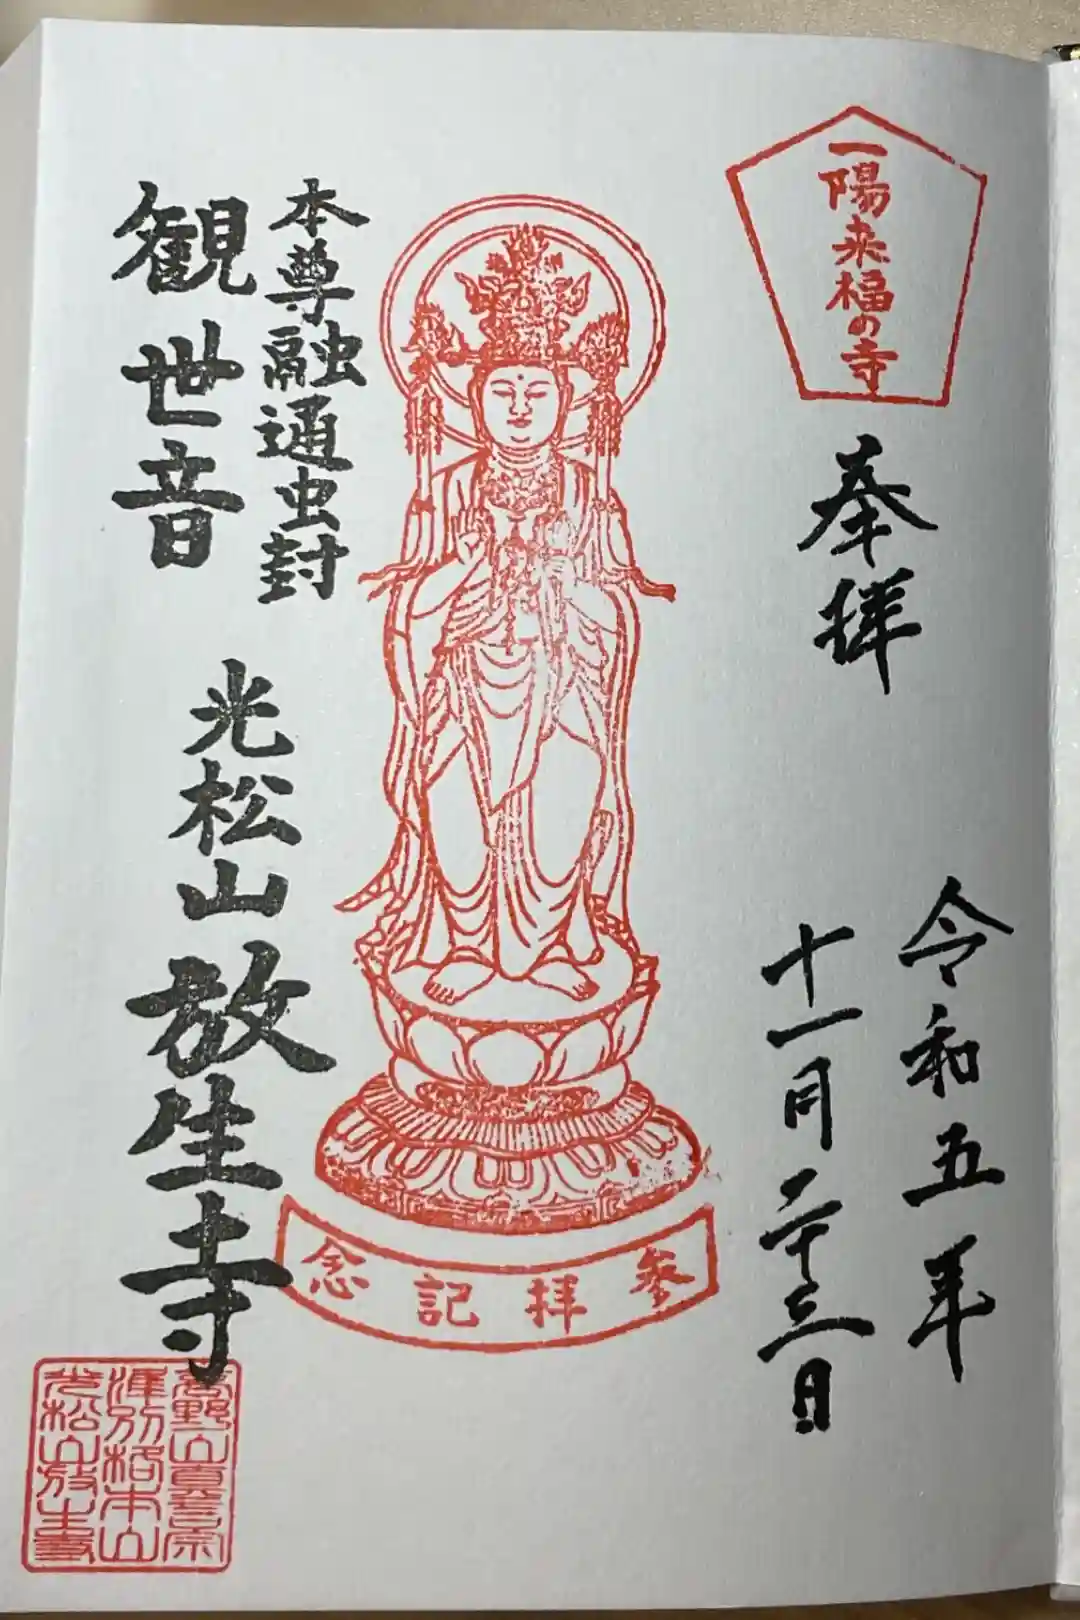 一陽来福の寺
奉拝
令和五年
十一月二十三日
参拝記念
本尊融通虫封
観世音
光松山放生寺
高野山真言宗
準別格本山
光松山放生寺